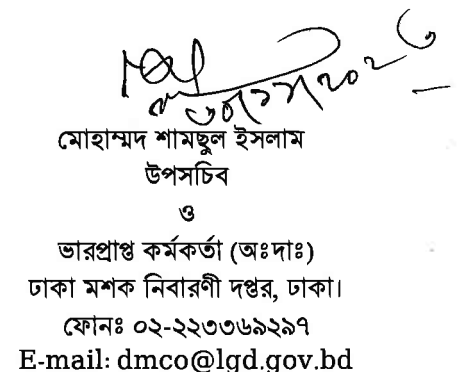 মোহাম্মদ শামছুল ইসলাম
উপসচিব
ও
ভারপ্রাপ্ত কর্মকর্তা (অঃদাঃ)
ঢাকা মশক নিবারণী দপ্তর, ঢাকা।
ফোনঃ ০২-২২৩৩৬৯২৯৭
E-mail: dmco@lgd.gov.bd